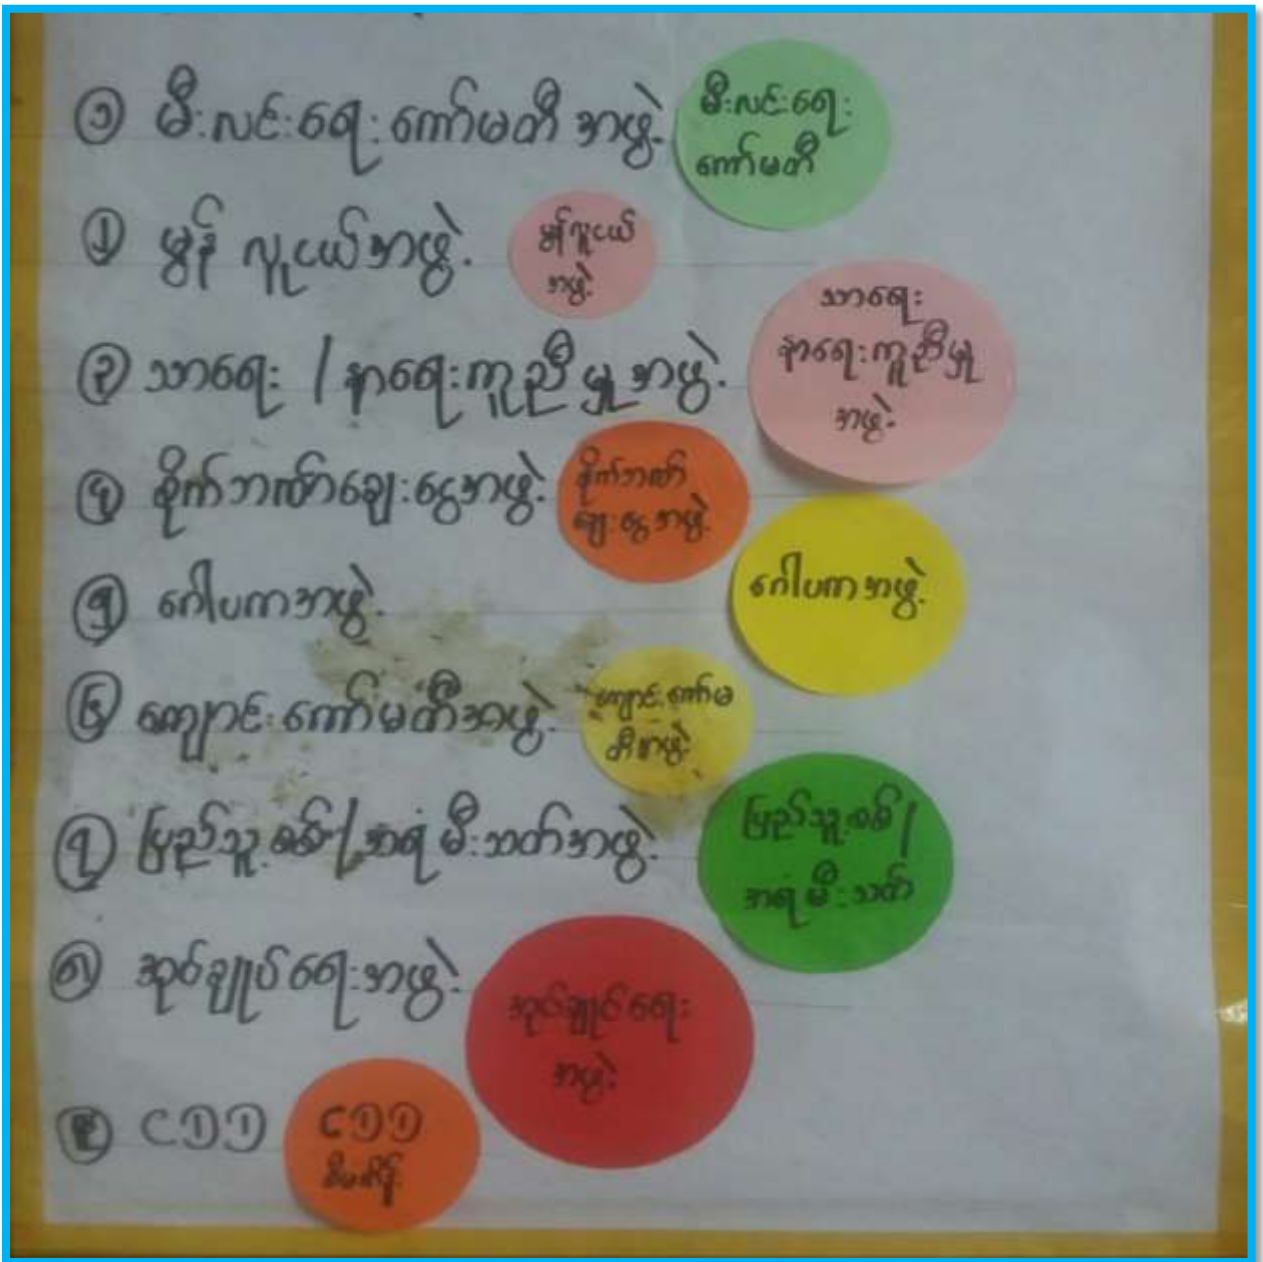 ၁ မီးလင်းရေးကော်မတီ အဖွဲ့
မီးလင်းရေး
ကော်မတီ
၂ မွန် လူငယ်အဖွဲ့
မွန်လူငယ်
အဖွဲ့
၃ သာရေး / နာရေးကူညီမှု အဖွဲ့
သာရေး
နာရေးကူညီမှု
အဖွဲ့
၄ စိုက်ဘဏ်ချေးငွေအဖွဲ့
စိုက်ဘဏ်
ချေးငွေအဖွဲ့
၅ ဂေါပကအဖွဲ့
ဂေါပကအဖွဲ့
၆ ကျောင်းကော်မတီအဖွဲ့
ကျောင်းကော်မ
တီအဖွဲ့
၇ ပြည်သူ့စစ်/အရံမီးသတ်အဖွဲ့
ပြည်သူ့စစ်/
အရံမီးသတ်
၈ အုပ်ချုပ်ရေးအဖွဲ့
အုပ်ချုပ်ရေး
အဖွဲ့
၉ CDD
CDD
စီမံကိန်း